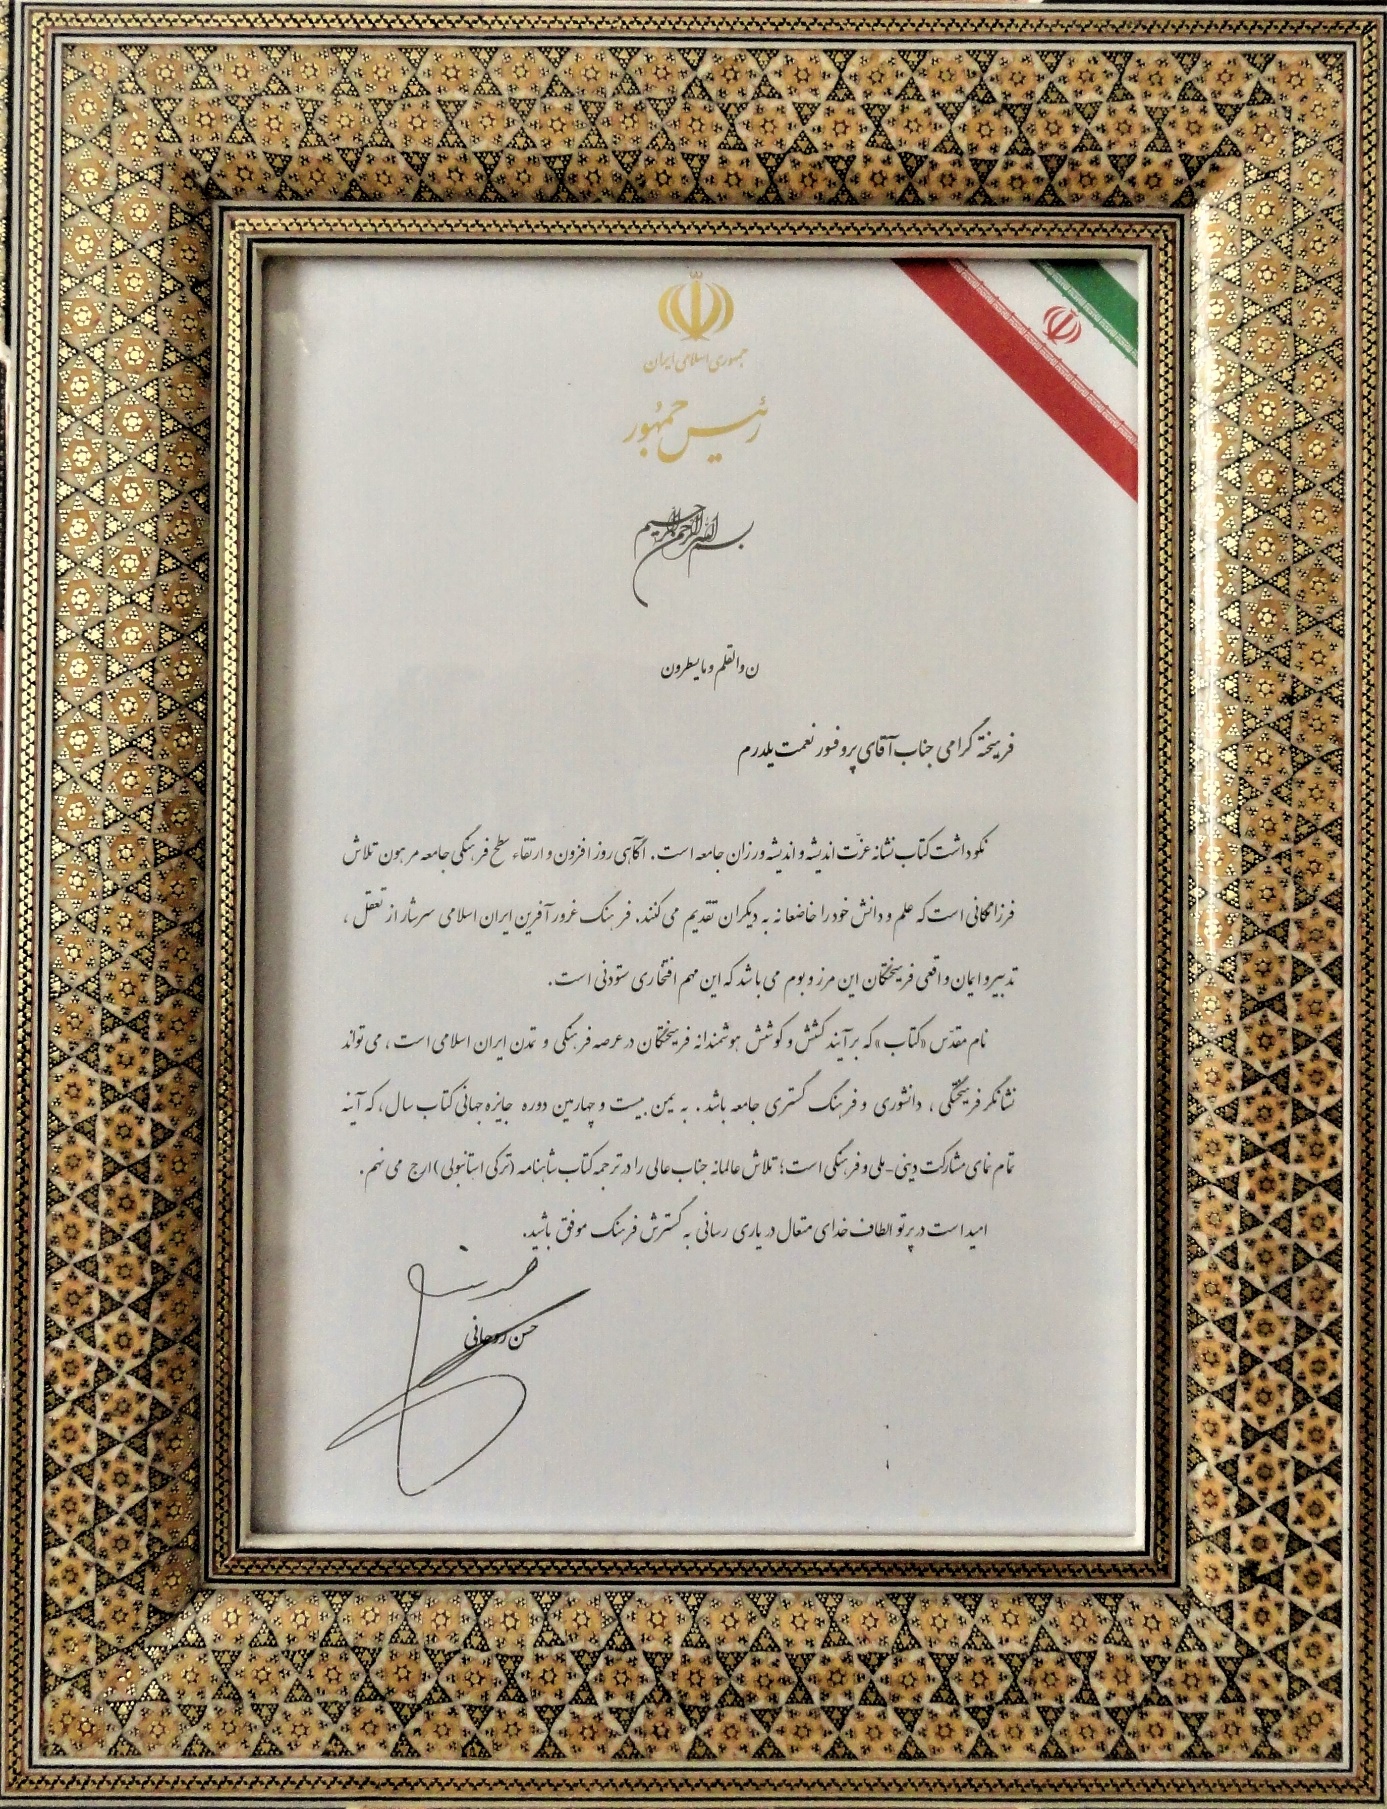 جمهوری اسلامی ایران
رئیس جمهور
بسم الله الرحمن الرحیم
ن والقلم و ما یسطرون
فرهیخته گرامی جناب آقای پروفسور نعمت یلدرم
نکوداشت کتاب نشانه عزّت اندیشه و اندیشه ورزان جامعه است. آگاهی روز افزون و ارتقاء سطح فرهنگی جامعه مرهون تلاش
فرزانگانی است که علم و دانش خود را خاضعانه به دیگران تقدیم می کنند. فرهنگ غرور آفرین ایران اسلامی سرشار از تعقل ،
تدبیر و ایمان واقعی فرهیختگان این مرز و بوم می باشد که این مهم افتخاری ستودنی است.
نام مقدّس «کتاب» که برآیند کشش و کوشش هوشمندانه فرهیختگان در عرصه فرهنگی و تمدن ایران اسلامی است ، می تواند
نشانگر فرهیختگی ، دانشوری و فرهنگ گستری جامعه باشد. به یمن بیست و چهارمین دوره جایزه جهانی کتاب سال، که آینه
تمام نمای مشارکت دینی-ملی و فرهنگی است؛ تلاش عالمانه جناب عالی را در ترجمه کتاب شاهنامه (ترکی استانبولی) ارج می نهم.
امید است در پرتو الطاف خدای متعال در یاری رسانی به گسترش فرهنگ موفق باشید.
حسن روحانی